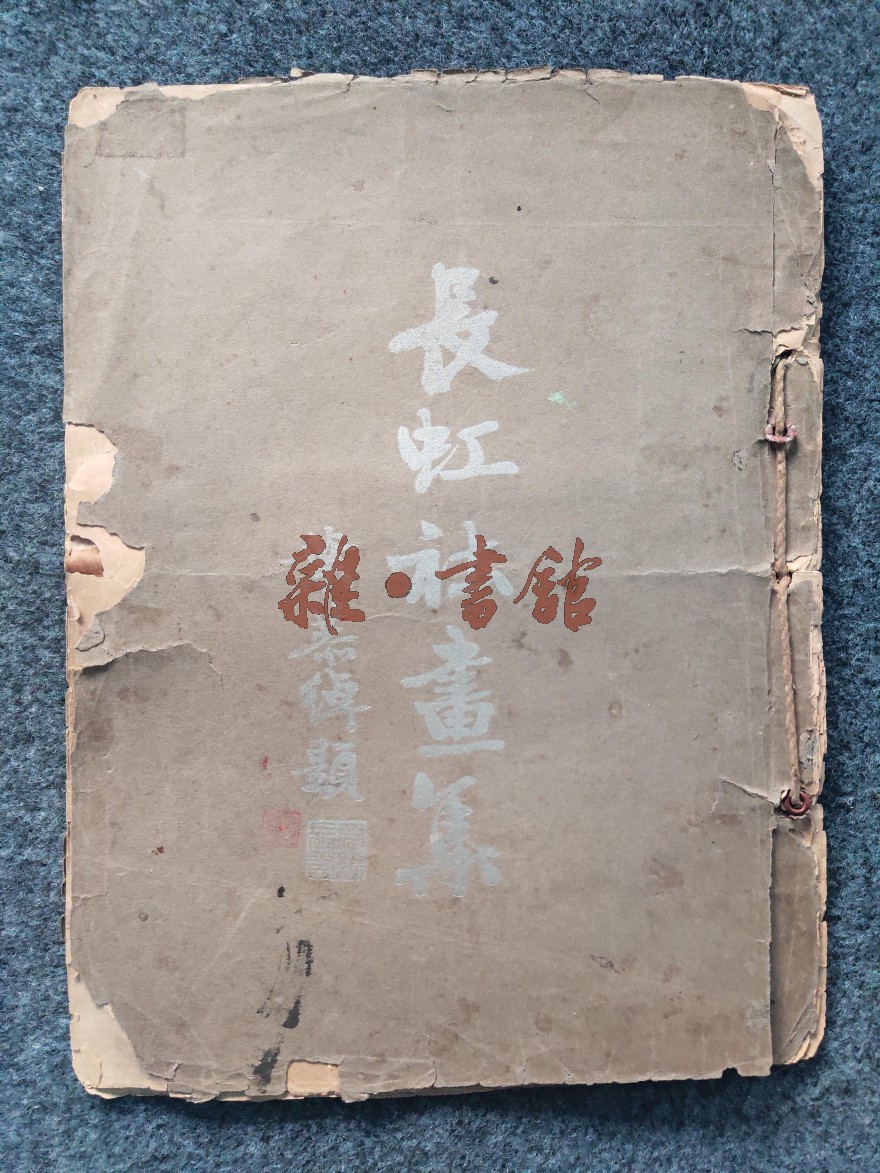 長虹社畫集
慕倬題
雜·書館